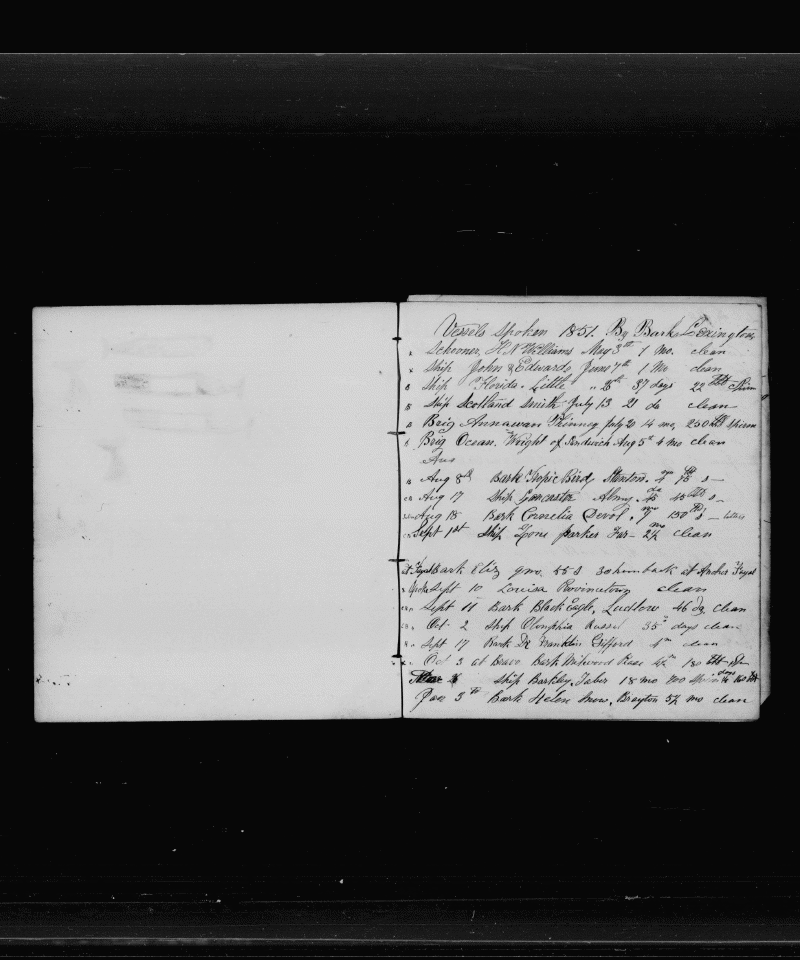 Vessels Spoken 1851. By Bark Lexington
Schooner, H N Williams May 3th 1 mo. clean
Ship John & Edward, June 7th 1 Mo clean
Ship Florida. Little " 25th 37 days 22 Sperm
Ship Scotland Smith July 13 21 do clean
Brig Annawan July 20 4 mo, 250 sperm
Brig Ocean. Wright of Sandwich Aug 5th 4 mo clean
Aug 8th Bark Tropic Bird, Stanton.
Aug 17 Ship Lancaster Almy.
Aug 18 Bark Cornelia Devol. 150
Sept 1st Ship Parker clean
Bark Eliz 9 mo, 55 s 30 humback at Anchor Fayal
Sept 10 Louisa Provincetown clean
Sept 11 Bark Black Eagle, Ludlow 46 clean
Oct 2 Ship Olimphia Russel 35 days clean
Sept 17 Bark Dr Franklin Gifford clean
Oct 3 at Bravo Bark 180
26 Ship Barkley, Taber 18 mo no
Jan 3th Bark Helen Snow, Brayton 5½ mo clean